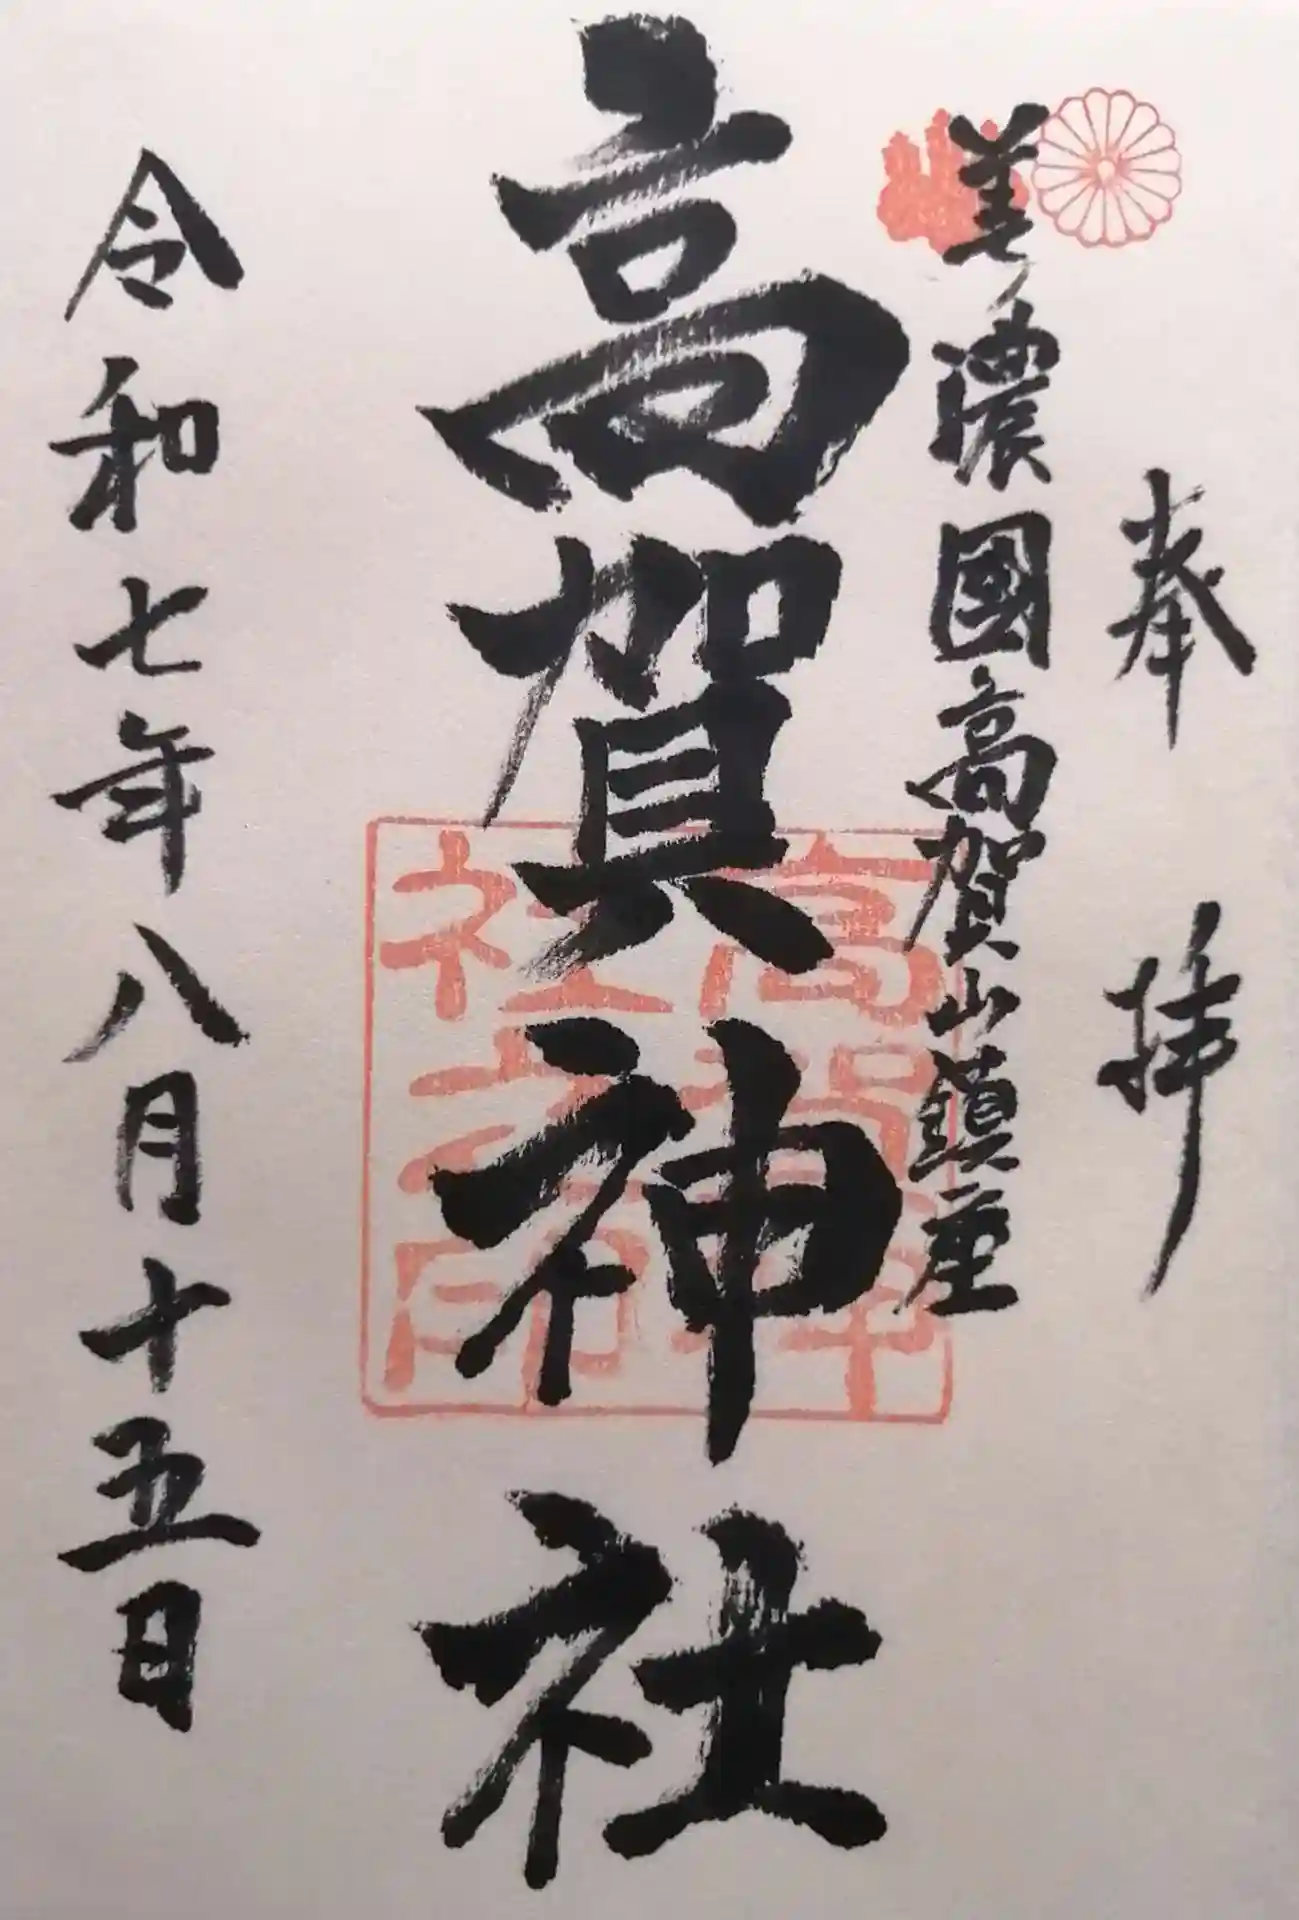 奉拝
美濃國高賀山鎮座
高賀神社
高賀神社之印
令和七年八月十五日